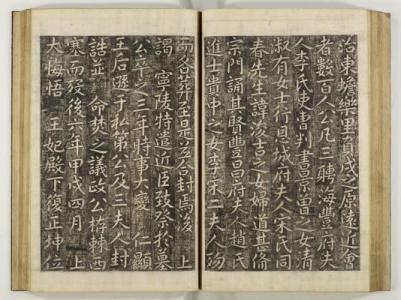 治東蟾樂里負戌之原遠近會
者數百人公凡三聘海豐府夫
人李氏吏曹判書景曾之女清
淑有女士行恩城府夫人宋氏同
春先生諱浚吉之女婦道甚脩
宗門誦其賢豐昌府夫人趙氏
進士貴中之女李宋二夫人歾
而各葬至是合封焉後 上
謁 寧陵特遣近臣致祭於墓
公卒之三年時事大變 仁顯
王后遜于私第公及三夫人封
誥並 命焚之議政公栫棘西
塞而歿後六年甲戌四月 上
大悔悟 王妃殿下復正坤位